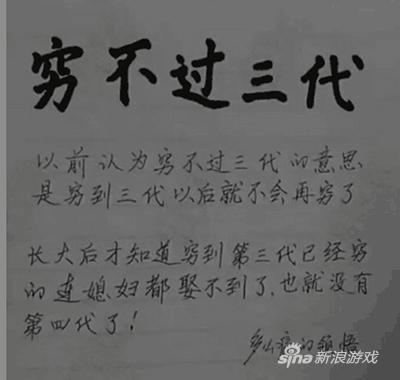 穷不过三代
以前认为穷不过三代的意思
是穷到三代以后就不会再穷了
长大后才知道穷到第三代已经穷
的连媳妇都娶不到了,也就没有
第四代了!
多么痛的领悟
sina新浪游戏